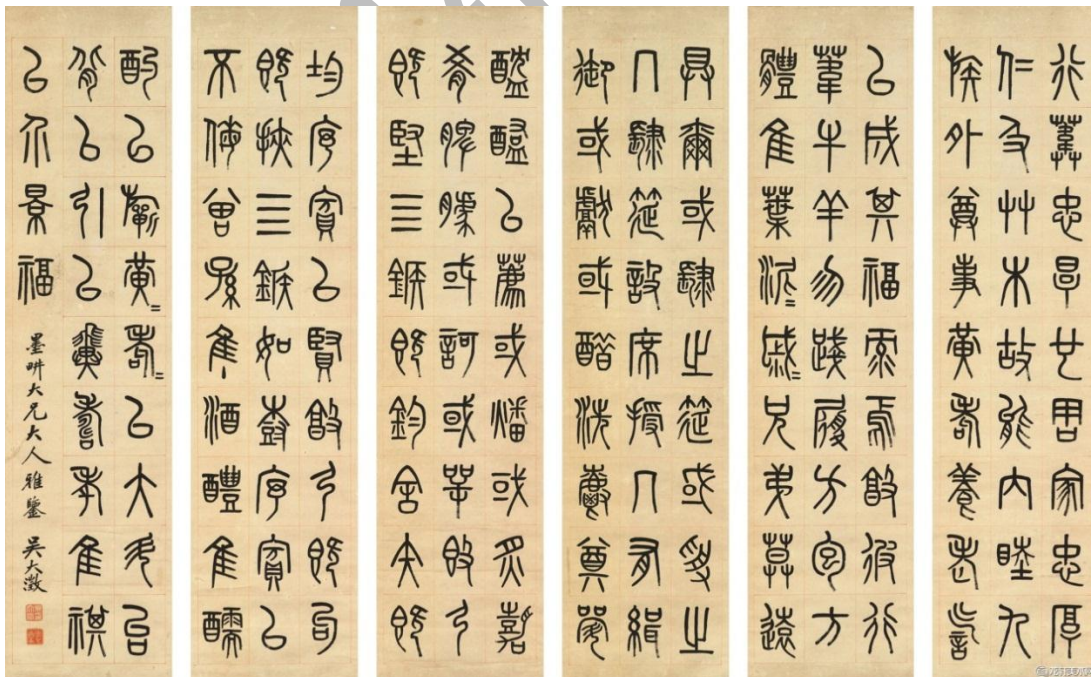 行葦忠厚也周家忠厚
仁及艸木故能內睦九
族外尊事黃耇養老乞言
以成其福祿焉敦彼行
葦牛羊勿踐履方苞方
體隹葉泥〻戚〻兄弟莫遠
具爾或肆之筵或授之
几肆筵設席授几有緝
御或獻或酢洗爵奠斝
醓醢以薦或燔或炙嘉
肴脾臄或歌或咢敦弓
既堅三鍭既鈞舍矢既
均序賓以賢敦弓既句
既挾三鍭如樹序賓以
不侮曾孫隹主酒醴隹醹
酌以祈黃〻耇〻以大斗台
背以引以翼壽考隹祺
以介景福
墨畊大兄大人雅鑒 吳大澂